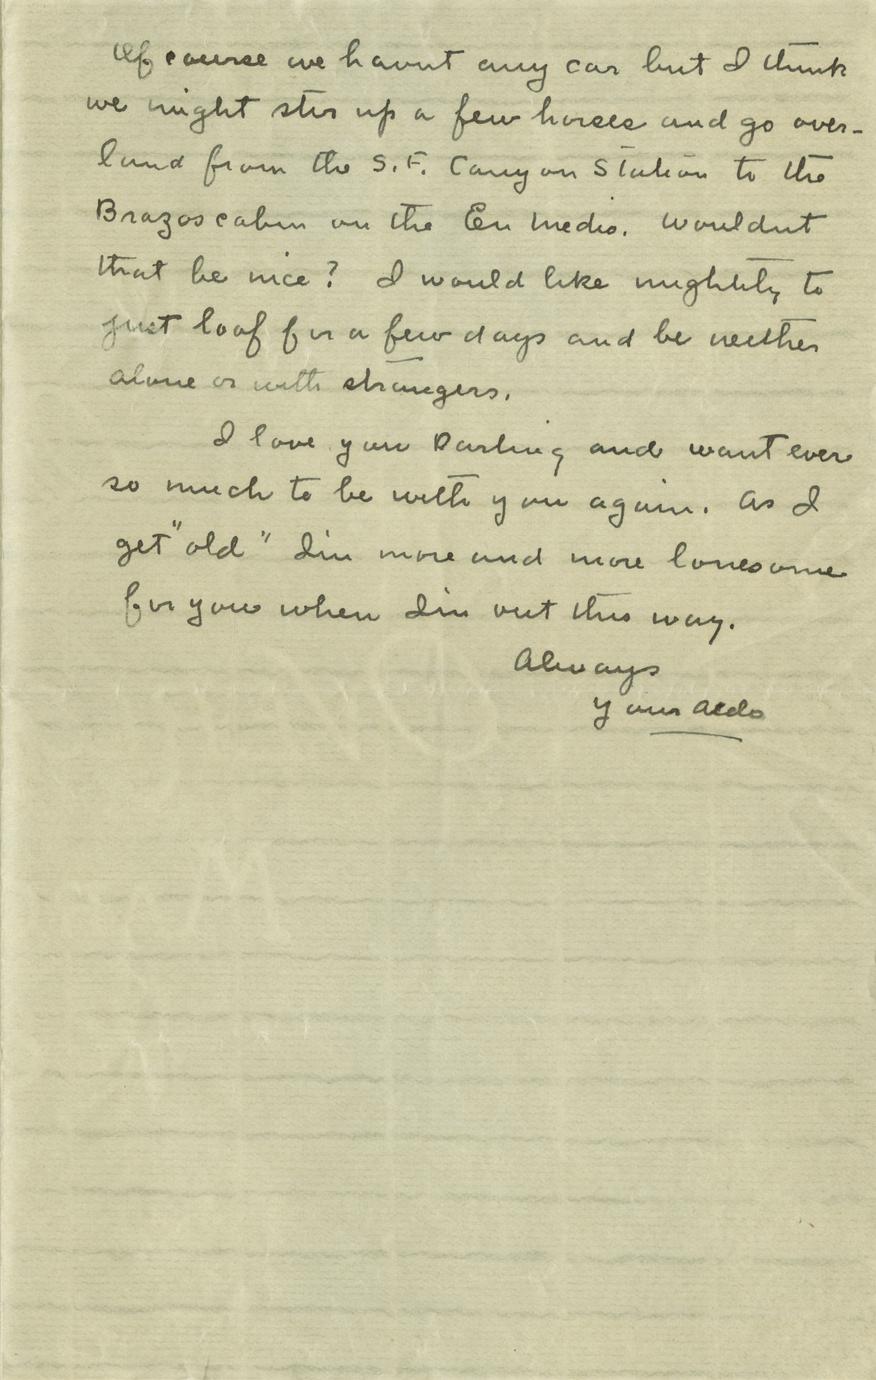 Of course we havnt any car but I think
we might stir up a few horses and go over-
land from the S.F. Canyon Station to the
Brazos cabin on the En Medio. Wouldnt
that be nice? I would like mightily to
just loaf for a few days and be neither
alone or with strangers.
I love you Darling and want ever
so much to be with you again. As I
get "old" Im more and more lonesome
for you when Im out this way.
Always
Your Aldo